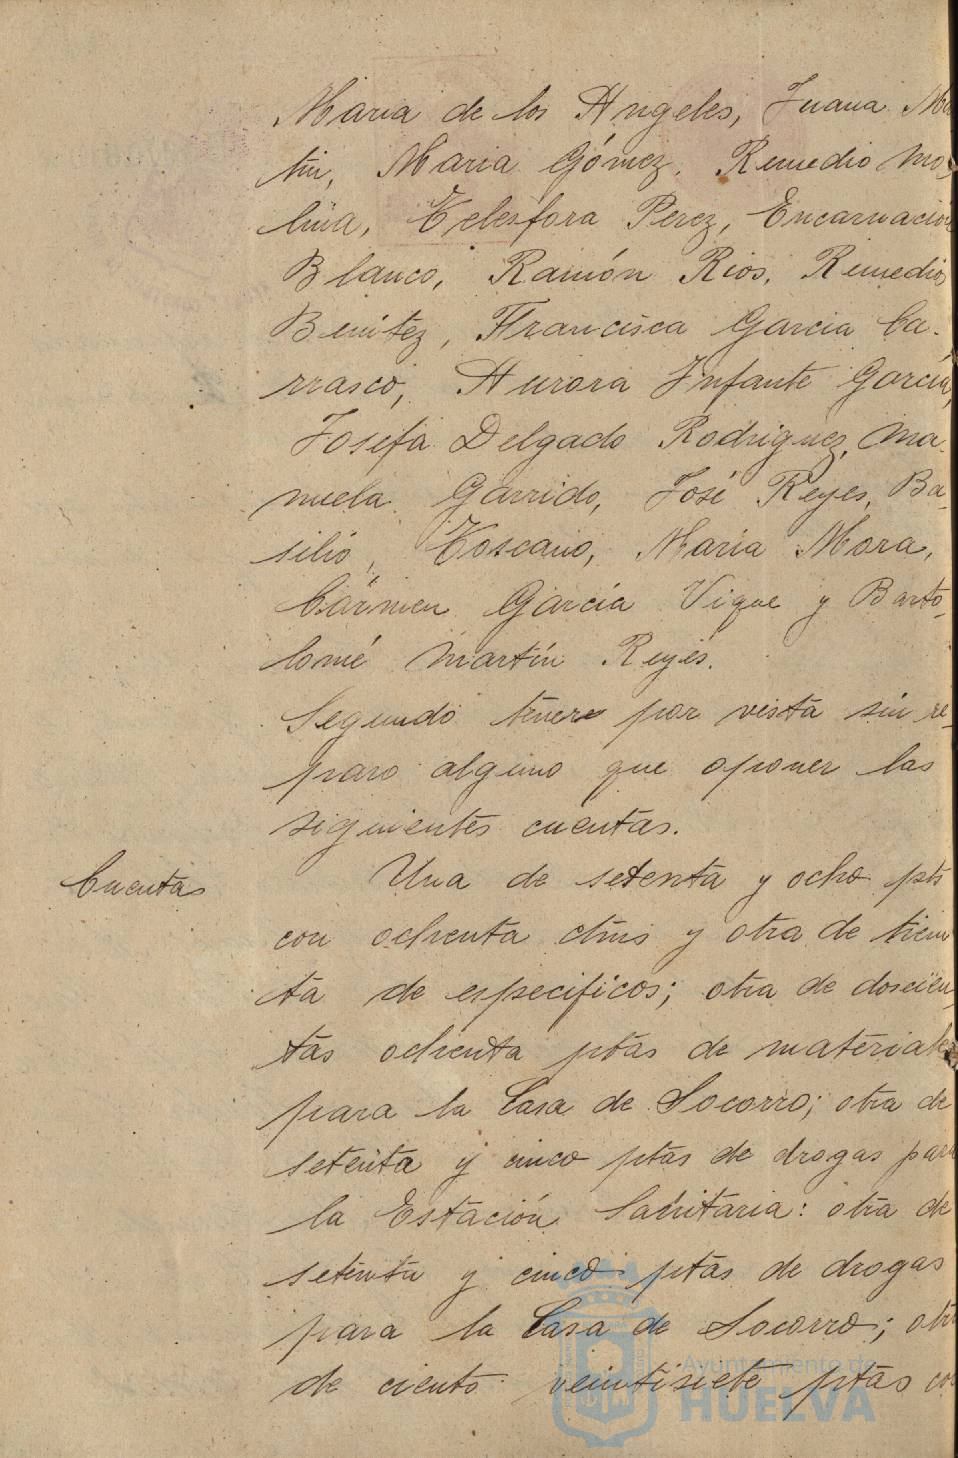 Maria de los Angeles, Juana Mar
tin, Maria Gómez, Remedio Mo-
lina, Telesfora Perez, Encarnación
Blanco, Ramón Rios, Remedios
Benitez, Francisca Garcia Ca-
rrasco, Aurora Infante García,
Josefa Delgado Rodriguez, Ma-
nuela Garrido, José Reyes, Ba-
silio, Toscano, Maria Mora,
Cármen García Vique y Barto-
lomé Martín Reyes.
Segundo tener por vista sin re-
paro alguno que oponer las
siguientes cuentas.
Cuentas
Una de setenta y ocho pts
con ochenta ctms y otra de trein
ta de especificos; otra de doscien-
tas ochenta ptas de materiales
para la Casa de Socorro; otra de
setenta y cinco ptas de drogas para
la Estación Sanitaria: otra de
setenta y cinco ptas de drogas
para la Casa de Socorro; otra
de ciento veintisiete ptas con
Ayuntamiento de
HUELVA